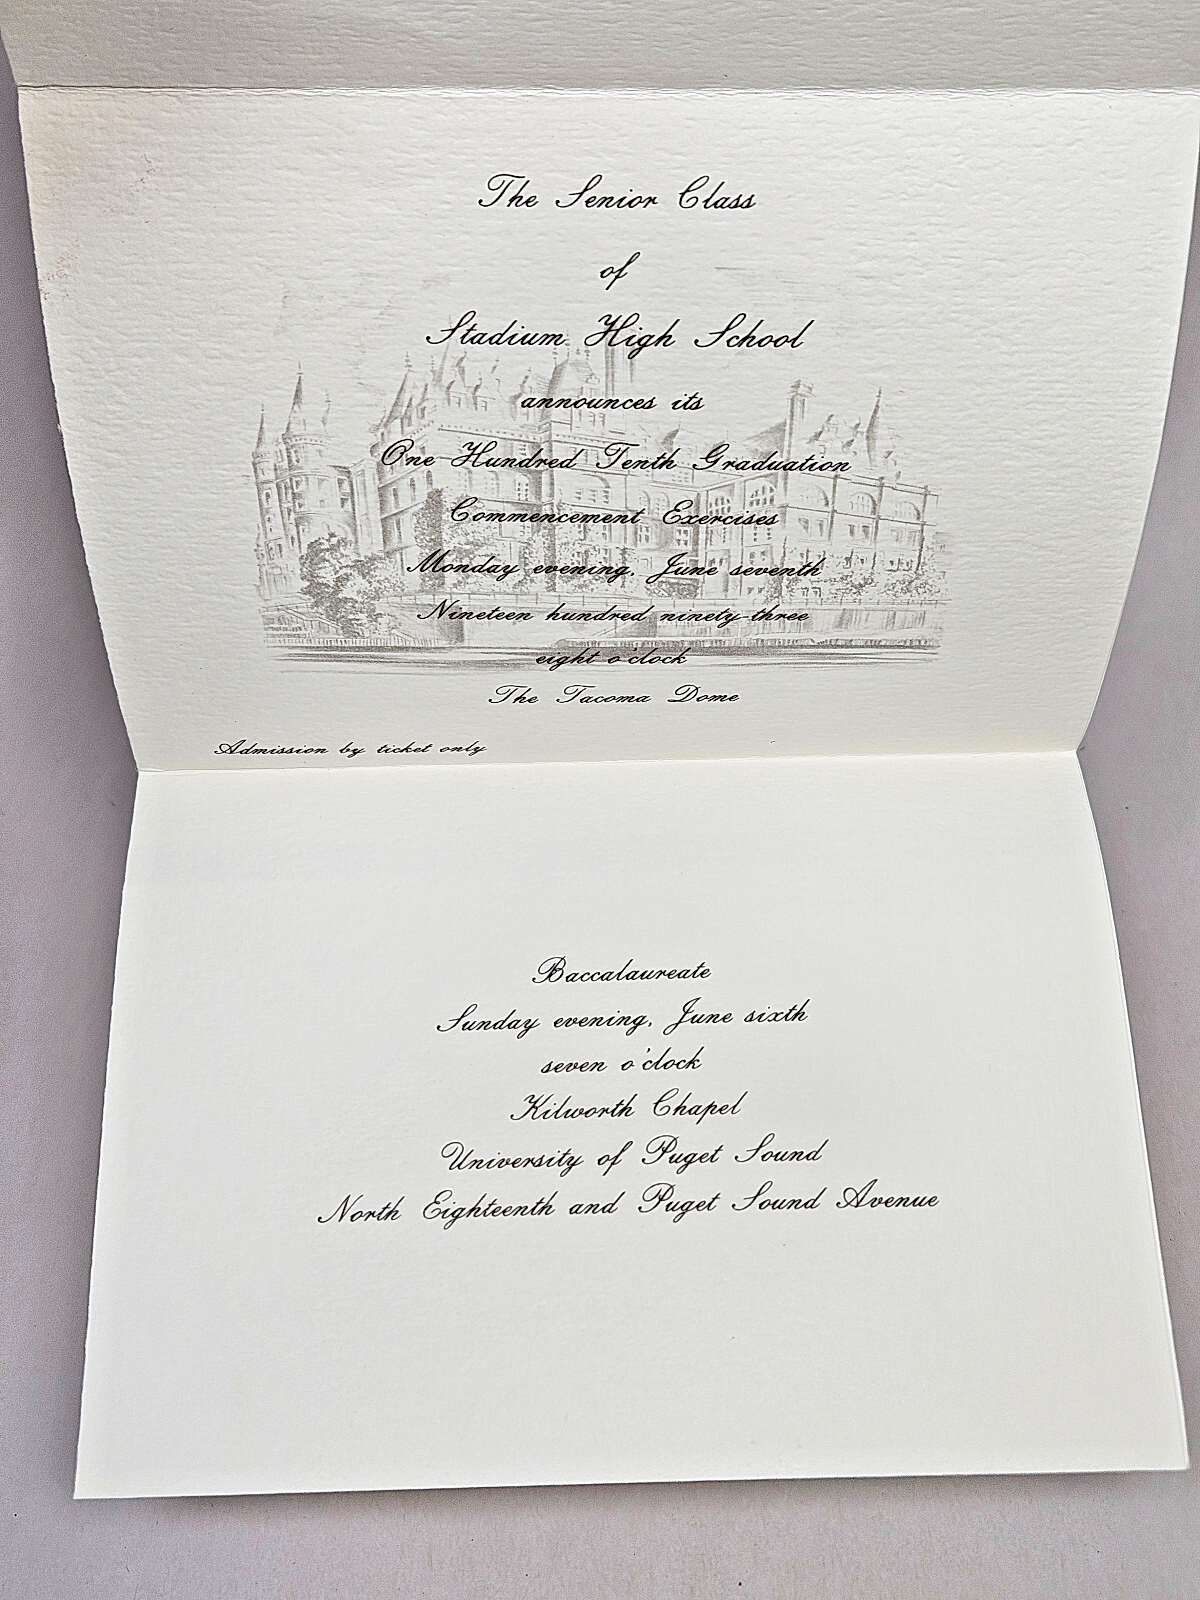 The Senior Class
of
Stadium High School
announces its
One Hundred Tenth Graduation
Commencement Exercises
Monday evening, June seventh
Nineteen hundred ninety-three
eight o'clock
The Tacoma Dome
Admission by ticket only
Baccalaureate
Sunday evening, June sixth
seven o'clock
Kilworth Chapel
University of Puget Sound
North Eighteenth and Puget Sound Avenue